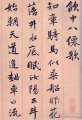 飲中八僊歌
知章騎馬似乘船眼花
落井水底眠汝陽三斗
始朝天道逢麴車口流